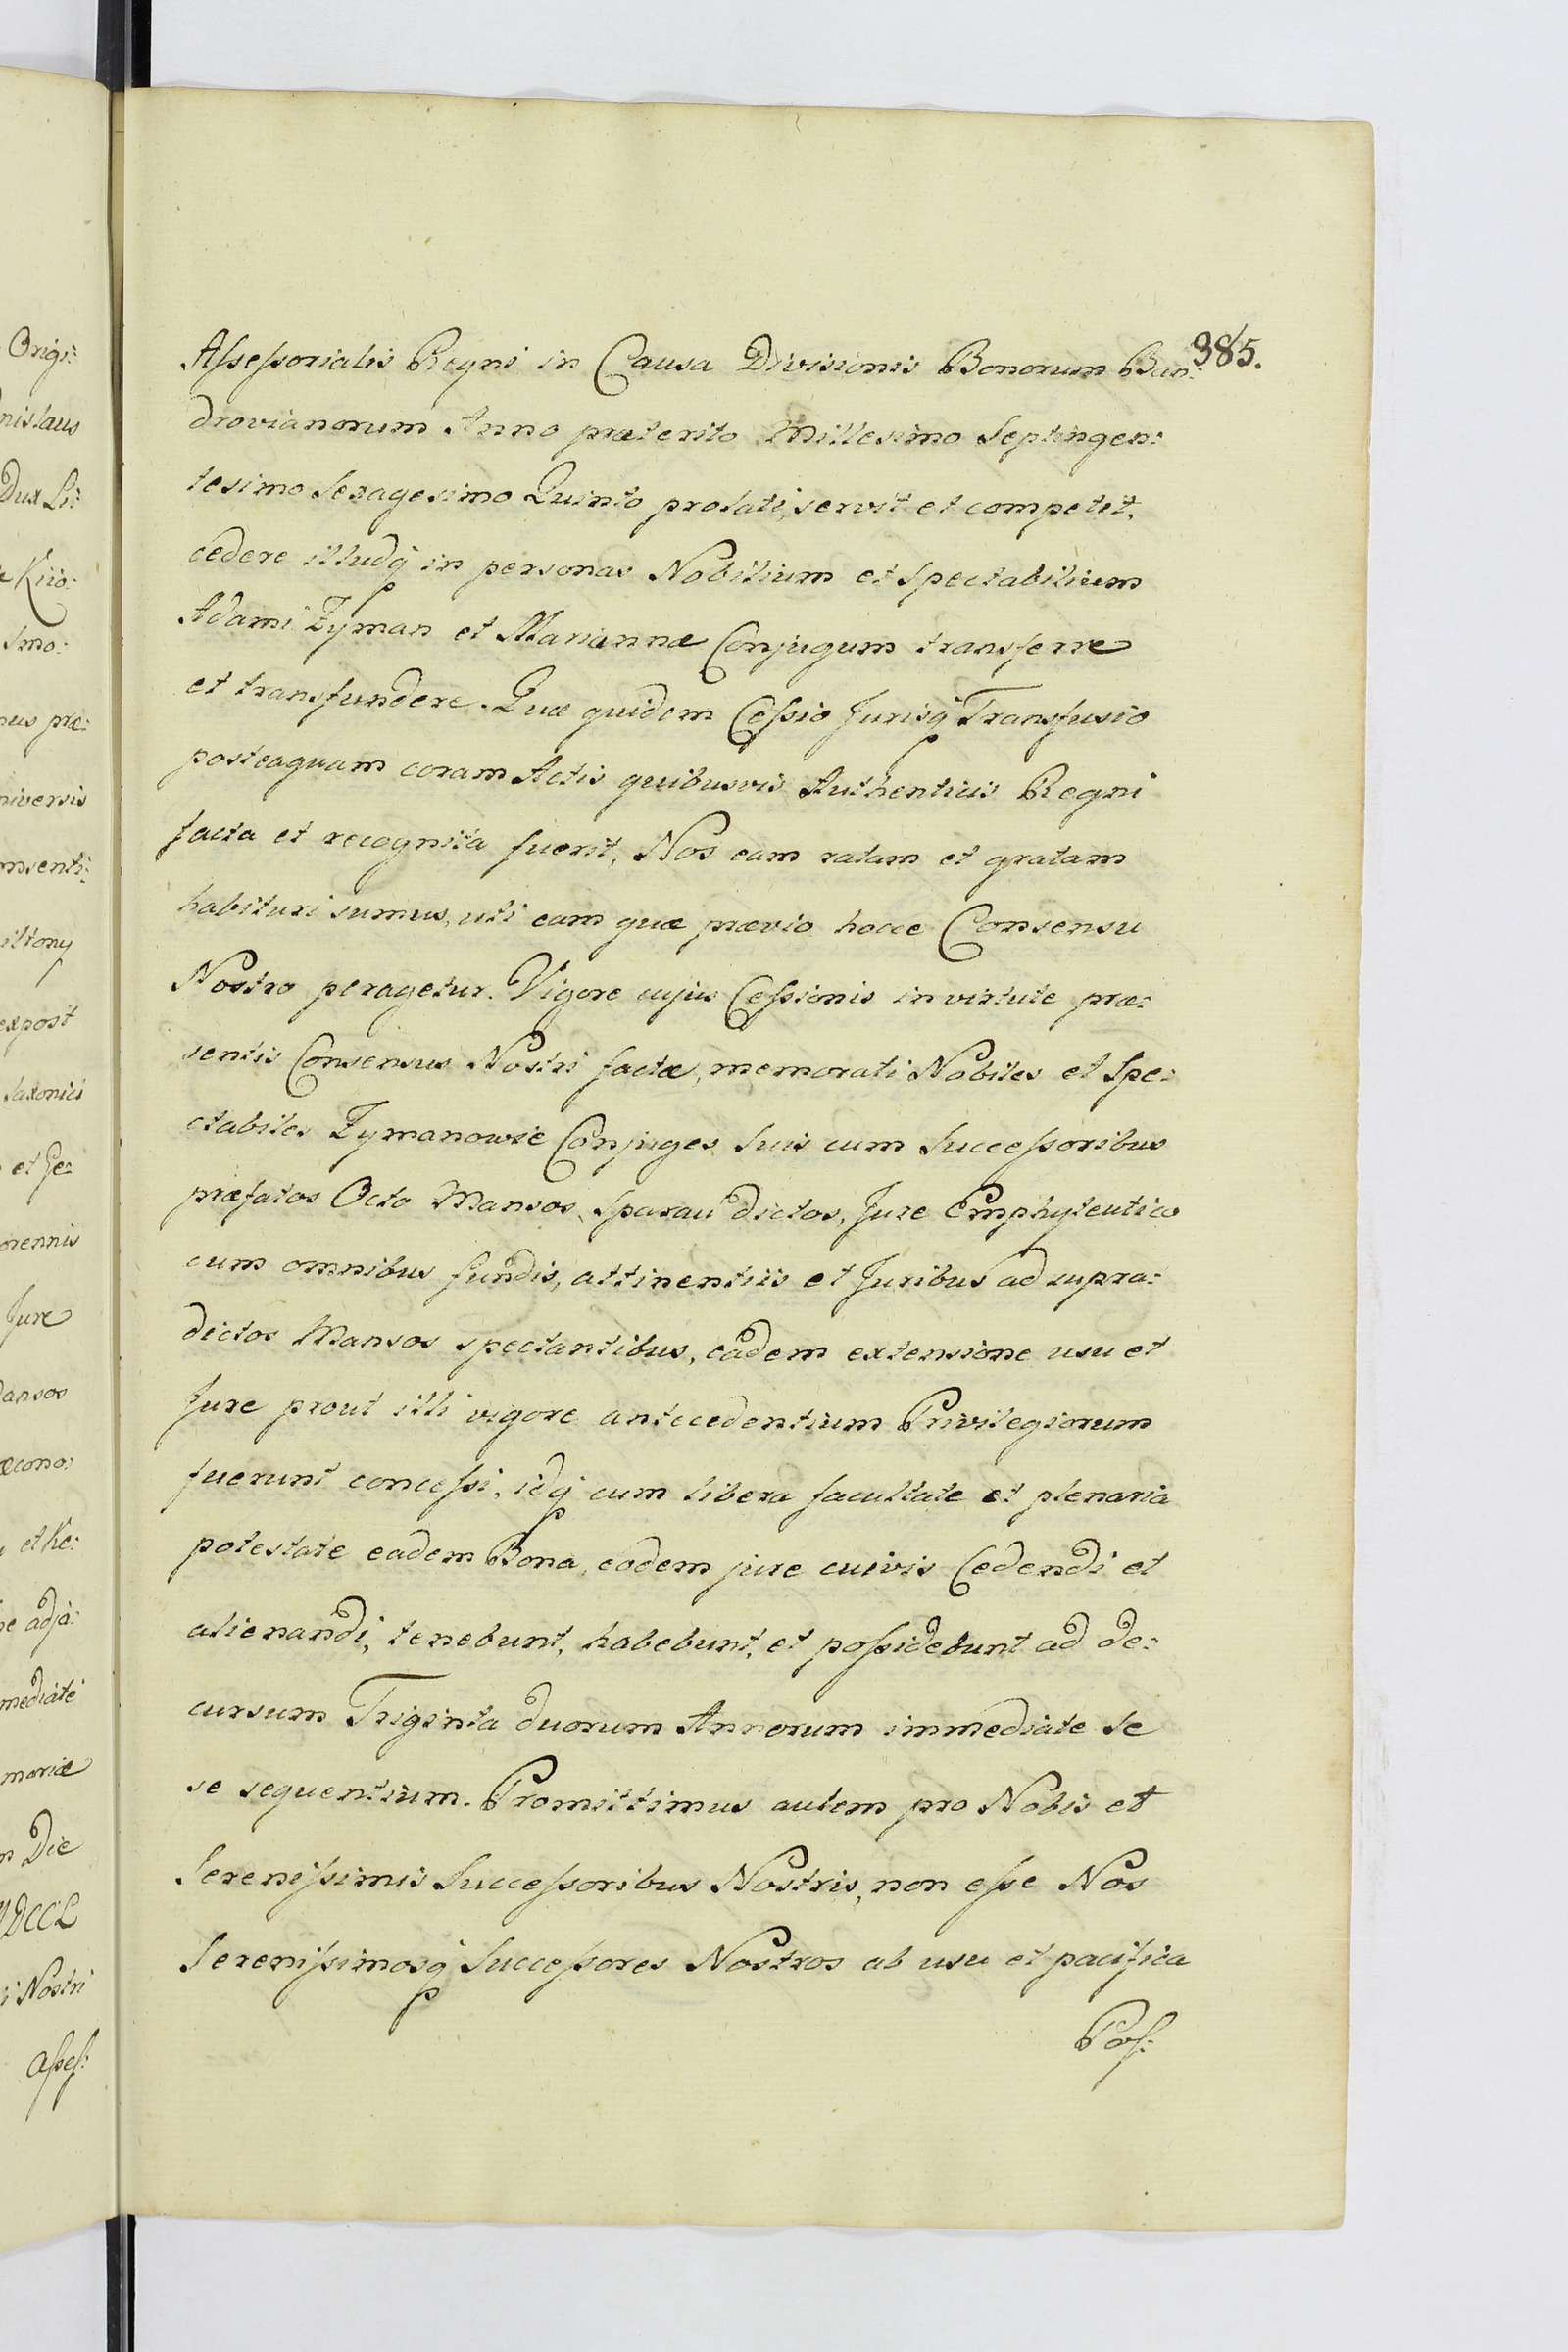 385.
Aſseſsorialis Regni in Causa Divisionis Bonorum Ban:
drovianorum Anno præterito Millesimo Septingen:
tesimo Sexagesimo Quinto prolati, servit et competit,
cedere illudq́ in personas Nobilium et Spectabilium
Adami Zyman et Mariannæ Conjugum transferre
et transfundere. Quæ quidem Ceſsio Jurisq́ Transfusio
posteaquam coram Actis quibusvis Authenticis Regni
facta et recognita fuerit, Nos eam ratam et gratam
habituri sumus, uti eam quæ prævio hocce Consensu
Nostro peragetur. Vigore cujus Ceſsionis in virtute præ:
sentis Consensus Nostri factæ, memorati Nobiles et Spe:
ctabiles Zymanowie Conjuges Suis cum Succeſsoribus
præfatos Octo Mansos, Sparau dictos, Jure Emphyteutico
cum omnibus fundis, attinentiis et Juribus ad supra:
dictos Mansos spectantibus, eâdem extensione usu et
Jure prout illi vigore antecedentium Privilegiorum
fuerunt conceſsi, idq́ cum libera facultate et plenaria
potestate eadem Bona, eodem jure cuivis Cedendi et
alienandi, tenebunt, habebunt, et poſsidebunt ad de:
cursum Triginta duorum Annorum immediate Se
se sequentium. Promittimus autem pro Nobis et
Sereniſsimis Succeſsoribus Nostris, non eſse Nos
Sereniſsimosq́ Succeſsores Nostros ab usu et pacifica
Poſ:
Origi:
nislaus
Dux Li:
Kiio:
Smo:
us præ:
niversis
nsenti:
iltony
expost
Saxonici
et Ge:
orennis
Jure
ansos
œcono:
et he:
adja:
mediate
moriæ
Die
DCCL
Nostri
aſseſ: